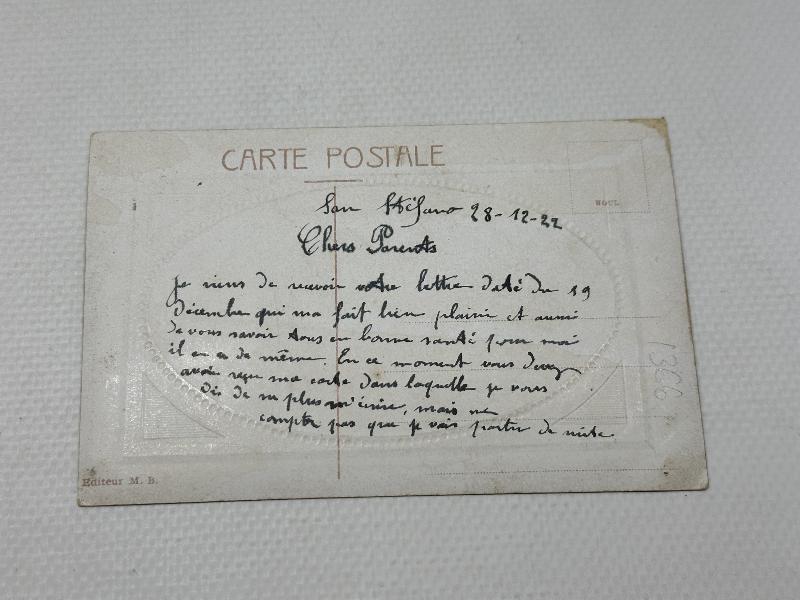 CARTE POSTALE
San Stéfano 28-12-22
Chers Parents
je viens de recevoir votre lettre daté du 19
décembre qui ma fait bien plaisir et aussi
de vous savoir tous en bonne santé pour moi
il en es de même. En ce moment vous devez
avoir reçu ma carte dans laquelle je vous
dis de ne plus m'écrire, mais ne
compte pas que je vais partir de suite
Editeur M. B.
1306